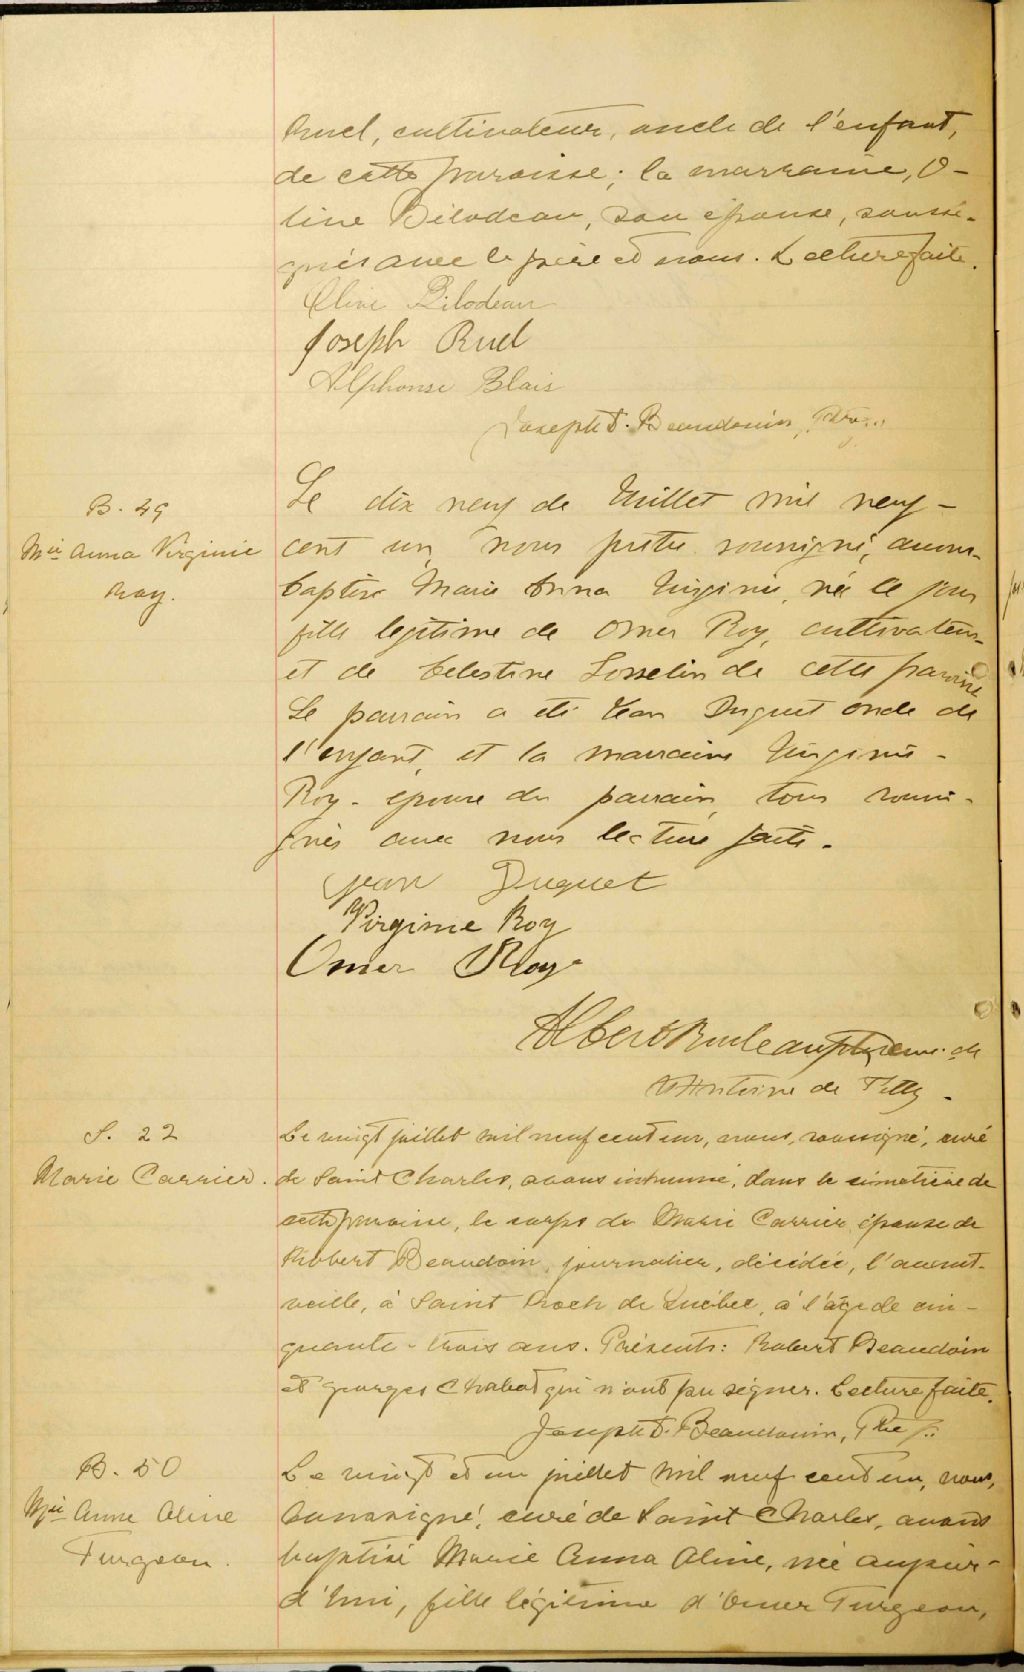 Ruel, cultivateur, oncle de l'enfant,
de cette paroisse; la marraine, O-
line Bilodeau, son épouse, soussi-
gnés avec le père et nous. Lecture faite.
Oline Bilodeau
Joseph Ruel
Alphonse Blais
Joseph D. Beaudouin, Ptre
B. 49
Mie Anna Virginie
Roy.
Le dix neuf de Juillet mil neuf-
cent un, nous prêtre soussigné, avons
baptisé Marie Anna Virginie, née ce jour
fille legitime de Omer Roy, cultivateur
et de Celestine Gosselin de cette paroisse
Le parrain a été Jean Duquet oncle de
l'enfant, et la marraine Virginie
Roy - épouse du parrain, tous soussi-
gnés avec nous lecture faite.
Jean Duquet
Virginie Roy
Omer Roy
Albert Rouleau ptre de
St Antoine de Tilly
S. 22
Marie Carrier.
Le vingt juillet mil neuf cent un, nous, soussigné, curé
de Saint Charles, avons inhumé, dans le cimetière de
cette paroisse, le corps de Marie Carrier, épouse de
Robert Beaudoin, journalier, décédée, l'avant-
veille, à Saint Roch de Québec, à l'âge de cin-
quante-trois ans. Présents: Robert Beaudoin
et Georges Chabot qui n'ont pu signer. Lecture faite.
Joseph D. Beaudouin, Ptre
B. 50
Mie Anna Aline
Turgeon.
Le vingt et un juillet mil neuf cent un, nous,
soussigné, curé de Saint Charles, avons
baptisé Marie Anna Aline, née aujour-
d'hui, fille légitime d'Omer Turgeon,